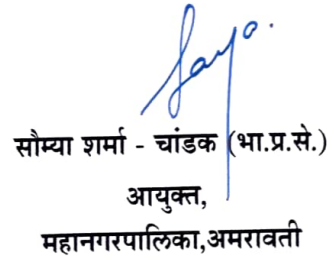 सौम्या शर्मा - चांडक (भा.प्र.से.)
आयुक्त,
महानगरपालिका,अमरावती